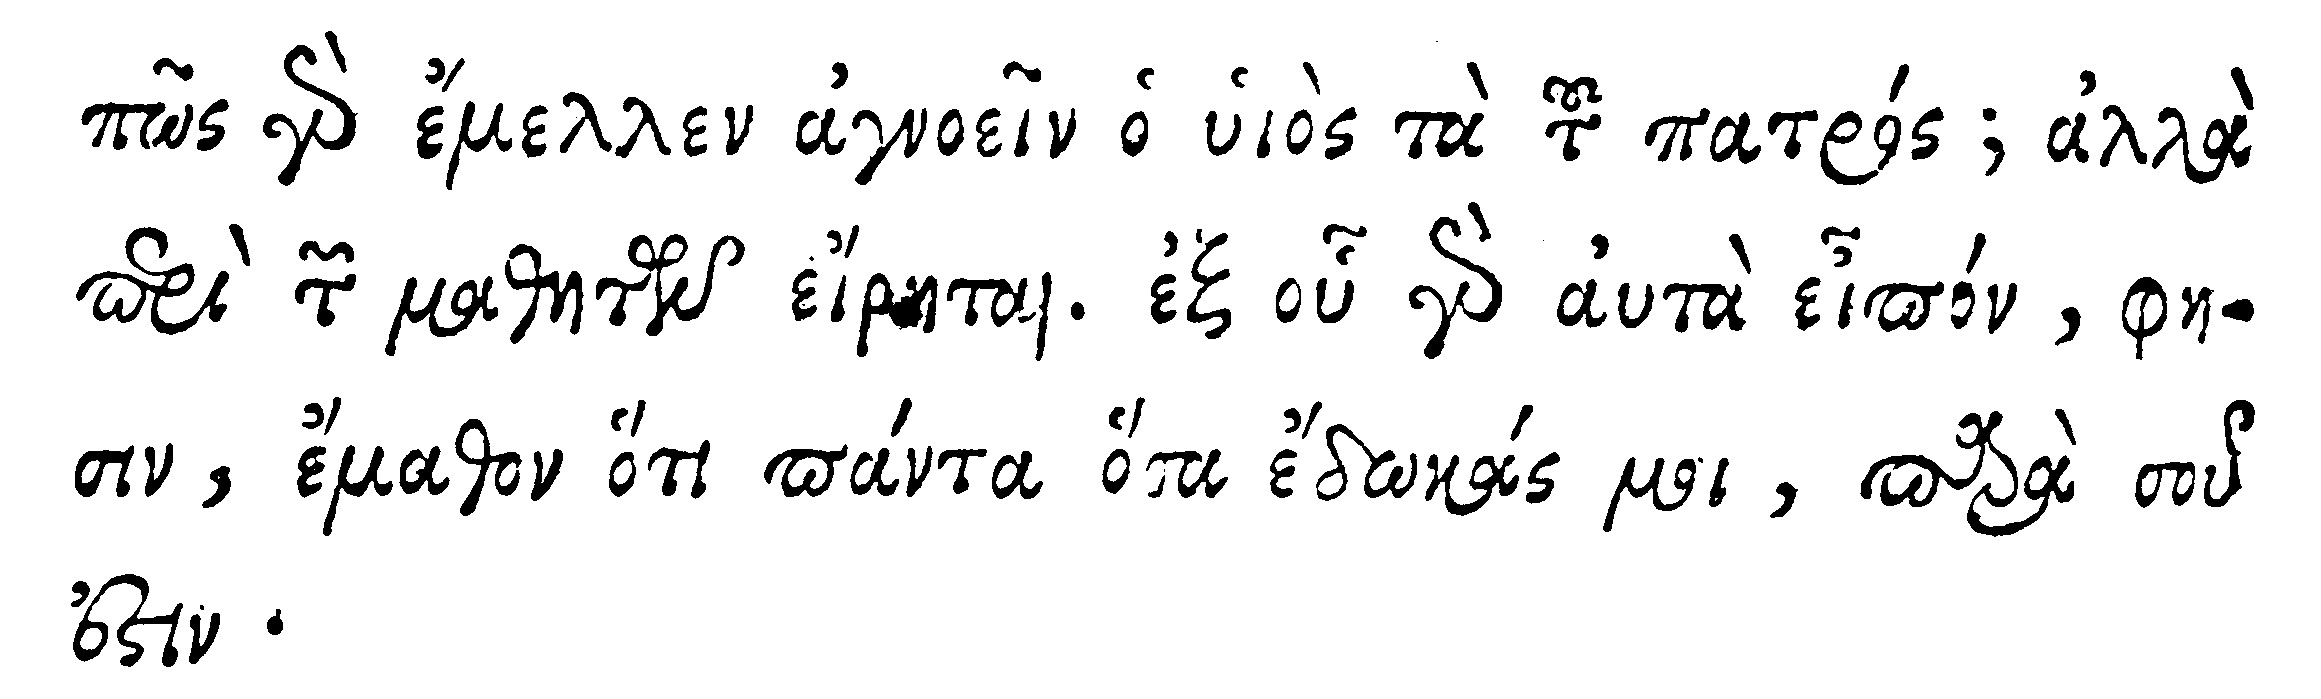 πῶς γὰρ ἔμελλεν ἀγνοεῖν ὁ ὑιὸς τὰ τοῦ πατρός; ἀλλὰ
περὶ τῶν μαθητῶν εἴρηται. ἐξ οὗ γὰρ ἀυτὰ εἶπόν, φη-
σιν, ἔμαθον ὅτι πάντα ὅσα ἔδωκάς μοι, παρὰ σοῦ
ἐστιν.